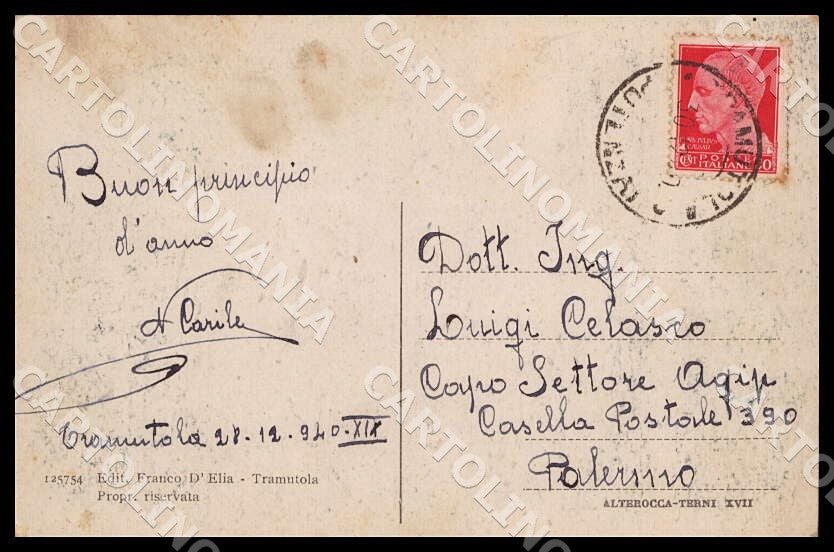 Buon principio
d'anno
Carile
Tramutola 28.12.940.XIX
125754 Edit. Franco D'Elia - Tramutola
Propr. riservata
POSTE
ITALIANE
Dott. Ing.
Luigi Celasco
Capo Settore Agip
Casella Postale 390
Palermo
ALTEROCCA-TERNI XVII
CARTOLINOMANIA